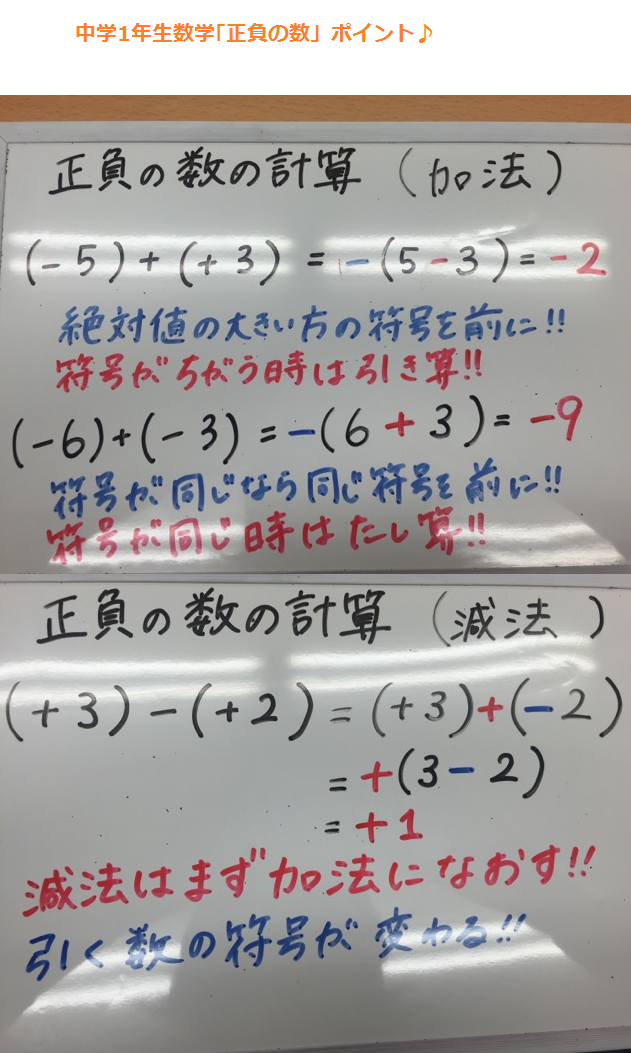 中学1年生数学｢正負の数」ポイント♪
正負の数の計算（加法）
(-5)+(+3) = -(5-3)=-2
絶対値の大きい方の符号を前に!!
符号がちがう時は引き算!!
(-6)+(-3)=-(6+3)=-9
符号が同じなら同じ符号を前に!!
符号が同じ時はたし算!!
正負の数の計算（減法）
(+3)-(+2)=(+3)+(-2)
=+(3-2)
=+1
減法はまず加法になおす!!
引く数の符号が変わる!!